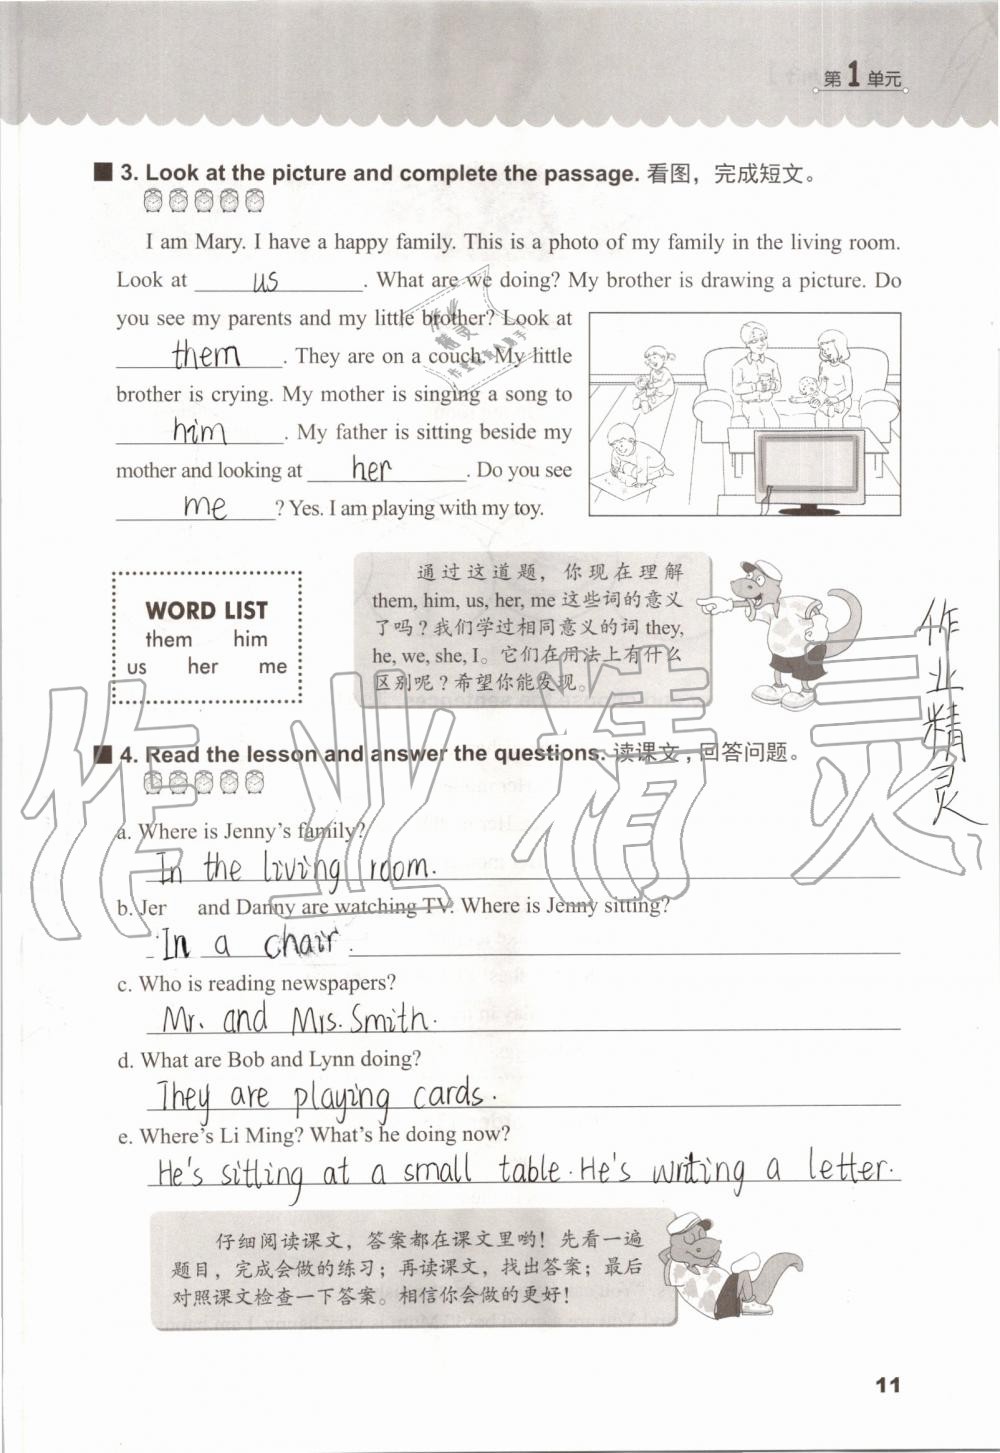 第1单元
3. Look at the picture and complete the passage. 看图，完成短文。
I am Mary. I have a happy family. This is a photo of my family in the living room.
Look at us. What are we doing? My brother is drawing a picture. Do
you see my parents and my little brother? Look at
them. They are on a couch. My little
brother is crying. My mother is singing a song to
him. My father is sitting beside my
mother and looking at her. Do you see
me? Yes. I am playing with my toy.
WORD LIST
them him
us her me
通过这道题，你现在理解
them, him, us, her, me 这些词的意义
了吗？我们学过相同意义的词 they,
he, we, she, I。它们在用法上有什么
区别呢？希望你能发现。
4. Read the lesson and answer the questions. 读课文，回答问题。
a. Where is Jenny's family?
In the living room.
b. Jer and Danny are watching TV. Where is Jenny sitting?
In a chair.
c. Who is reading newspapers?
Mr. and Mrs. Smith.
d. What are Bob and Lynn doing?
They are playing cards.
e. Where's Li Ming? What's he doing now?
He's sitting at a small table. He's writing a letter.
仔细阅读课文，答案都在课文里哟！先看一遍
题目，完成会做的练习；再读课文，找出答案；最后
对照课文检查一下答案。相信你会做的更好！
11
作业精灵
作业精灵